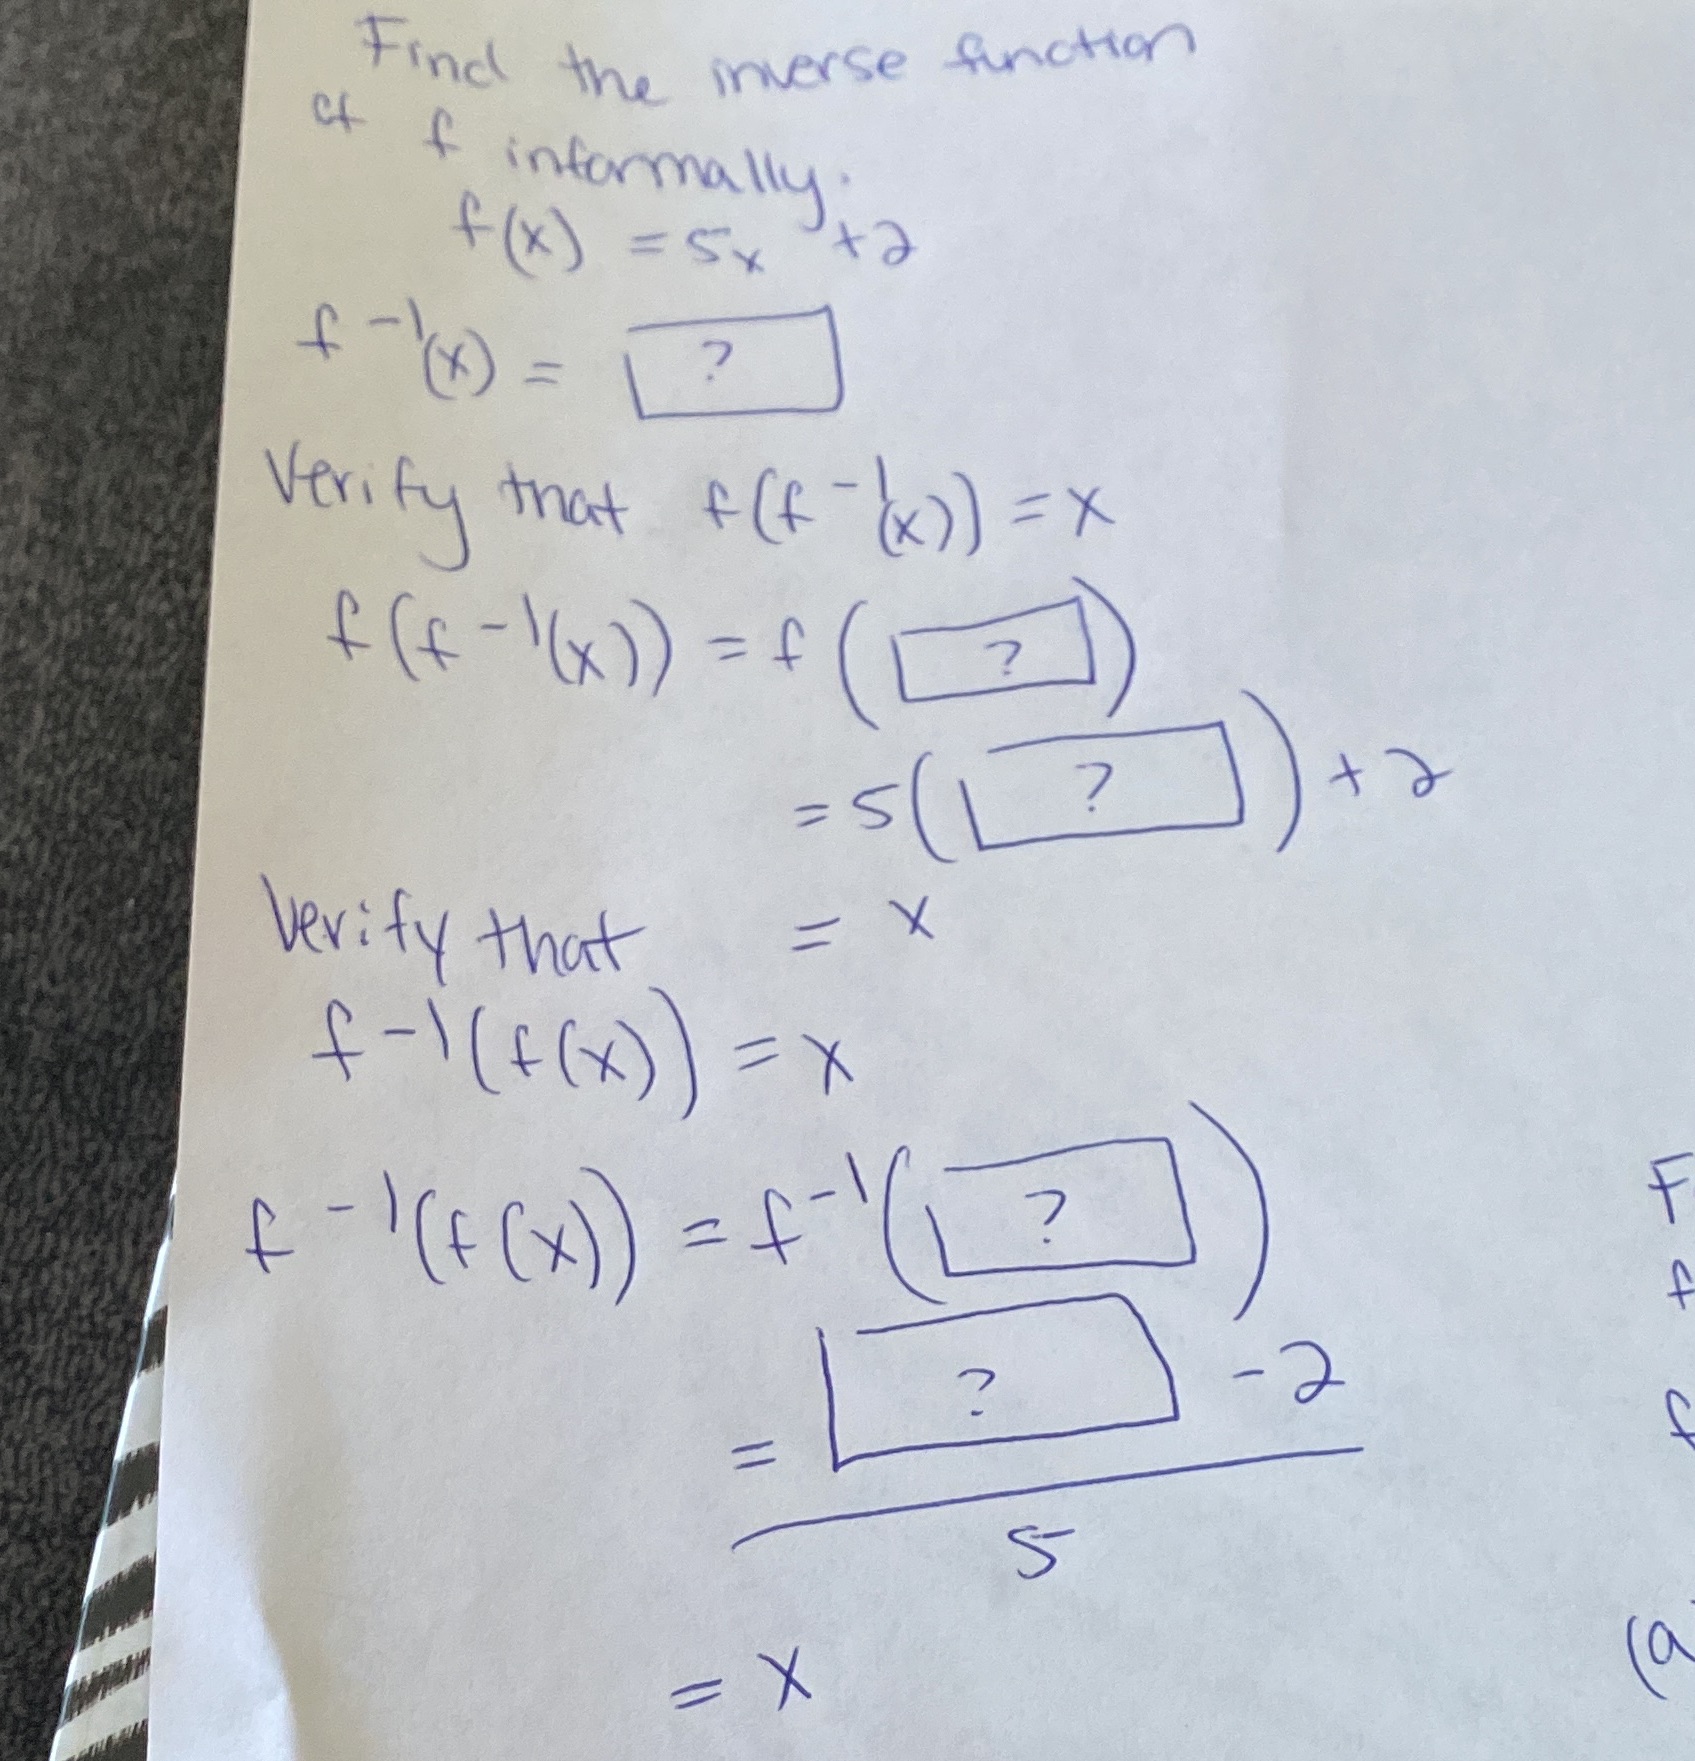 Find the inverse function
of f informally.
f(x) = 5x + 2
f⁻¹(x) = ?
Verify that f(f⁻¹(x)) = x
f(f⁻¹(x)) = f(?)
= 5(?) + 2
= x
Verify that
f⁻¹(f(x)) = x
f⁻¹(f(x)) = f⁻¹(?)
= ? - 2
5
= x
F
f
f
(a